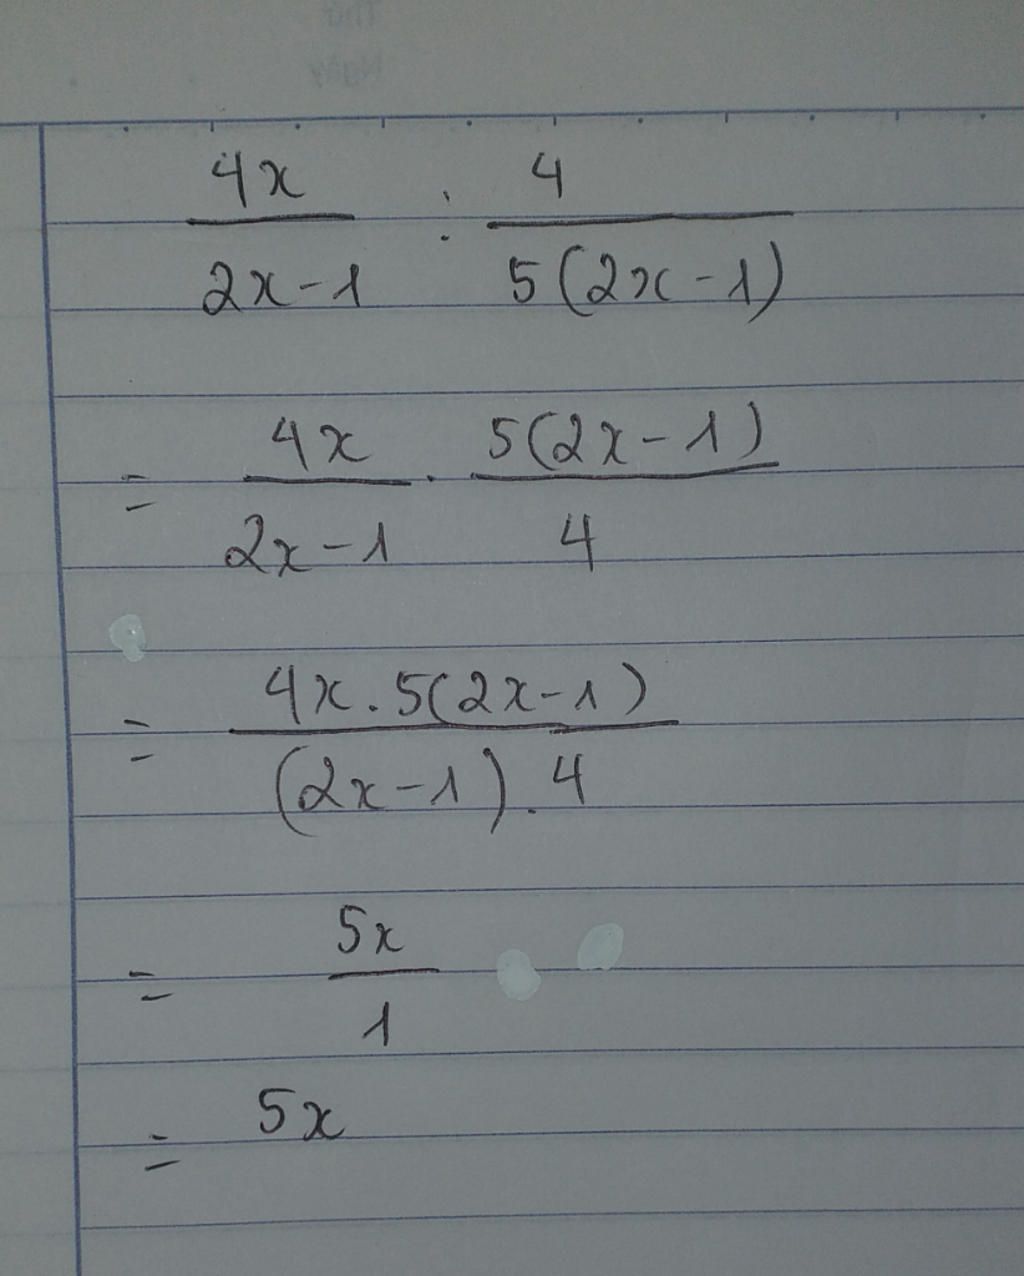 Thứ
Ngày
4x/(2x-1) : 4/(5(2x-1))
= 4x/(2x-1) . 5(2x-1)/4
= (4x.5(2x-1))/((2x-1).4)
= 5x/1
= 5x